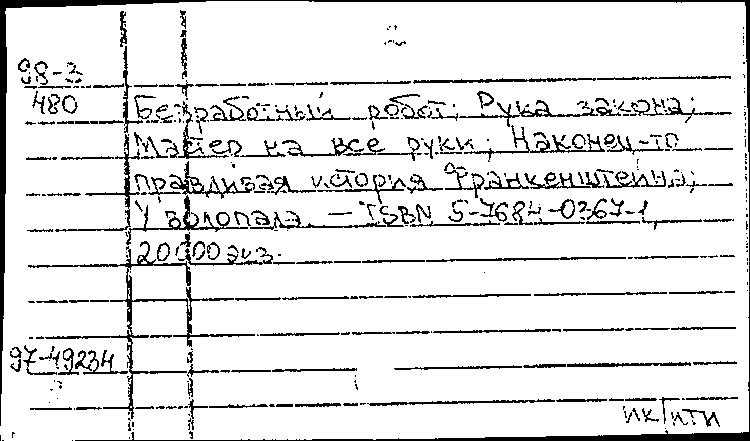 2
98-3
480
Безработный робот; Рука закона;
Мастер на все руки; Наконец-то
правдивая история Франкенштейна;
У водопада. — ISBN 5-7684-0367-1,
20000 экз.
97-49234
ИК/ИТИ